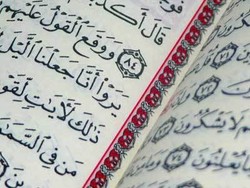 قَالَ أَكَذَّ
٨٤ وَوَقَعَ الْقَوْلُ عَلَيْهِم
يَرَوْا أَنَّا جَعَلْنَا الَّيْلَ
ذَٰلِكَ لَآيَٰتٍ لِّقَوْ
مَن فِي السَّمَ
لَا يَشْكُرُونَ
يُعْلِنُونَ